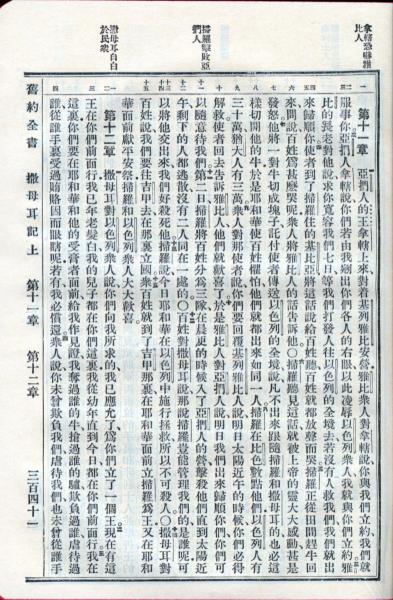 拿轄恐嚇雅
比人
掃羅擊敗亞
捫人
撒母耳自白
於民衆
第十一章 亞捫人的王拿轄上來對着基列雅比安營雅比衆人對拿轄說你與我們立約我們就
服事你亞捫人拿轄說你們若由我剜出你們各人的右眼以此凌辱以色列衆人我就與你們立約雅
比的長老對他說求你寬容我們七日等我們打發人往以色列的全境去若沒有人救我們我們就出
來歸順你使者到了掃羅住的基比亞將這話說給百姓聽百姓就都放聲而哭掃羅正從田間趕牛回
來問說百姓爲甚麼哭呢衆人將雅比人的話告訴他〇掃羅聽見這話就被上帝的靈大大感動甚是
發怒他將一對牛切成塊子託付使者傳送以色列的全境說凡不出來跟隨掃羅和撒母耳的也必這
樣切開他的牛於是耶和華使百姓懼怕他們就都出來如同一人掃羅在比色數點他們以色列人有
三十萬猶大人有三萬衆人對那使者說你們要回覆基列雅比人說明日太陽近午的時候你們必得
解救使者回去告訴雅比人他們就歡喜了於是雅比人對亞捫人說明日我們出來歸順你們你們可
以隨意待我們第二日掃羅將百姓分爲三隊在晨更的時候入了亞捫人的營擊殺他們直到太陽近
午剩下的人都逃散沒有二人同在一處的〇百姓對撒母耳說那說掃羅豈能管理我們的是誰呢可
以將他交出來我們好殺死他掃羅說今日耶和華在以色列中施行拯救所以不可殺人〇撒母耳對
百姓說我們要往吉甲去在那裏立國衆百姓就到了吉甲那裏在耶和華面前立掃羅爲王又在耶和
華面前獻平安祭掃羅和以色列衆人大大歡喜
第十二章 撒母耳對以色列衆人說你們向我所求的我已應允了爲你們立了一個王現在有這
王在你們前面行我已年老髮白我的兒子都在你們這裏我從幼年直到今日都在你們前面行我在
這裏你們要在耶和華和他的受膏者面前給我作見證我奪過誰的牛搶過誰的驢欺負過誰虐待過
誰從誰手裏受過賄賂因而眼瞎呢若有我必償還衆人說你未曾欺負我們虐待我們也未曾從誰手
舊約全書 撒母耳記上 第十一章 第十二章 三百四十一